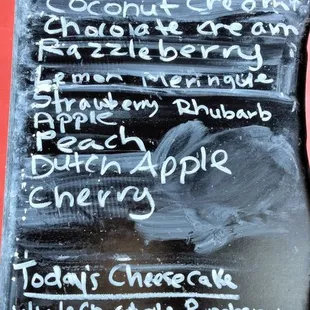 Coconut Cream
Chocolate cream
Razzleberry
Lemon Meringue
Strawberry Rhubarb
Apple
Peach
Dutch Apple
Cherry
Today's Cheesecake